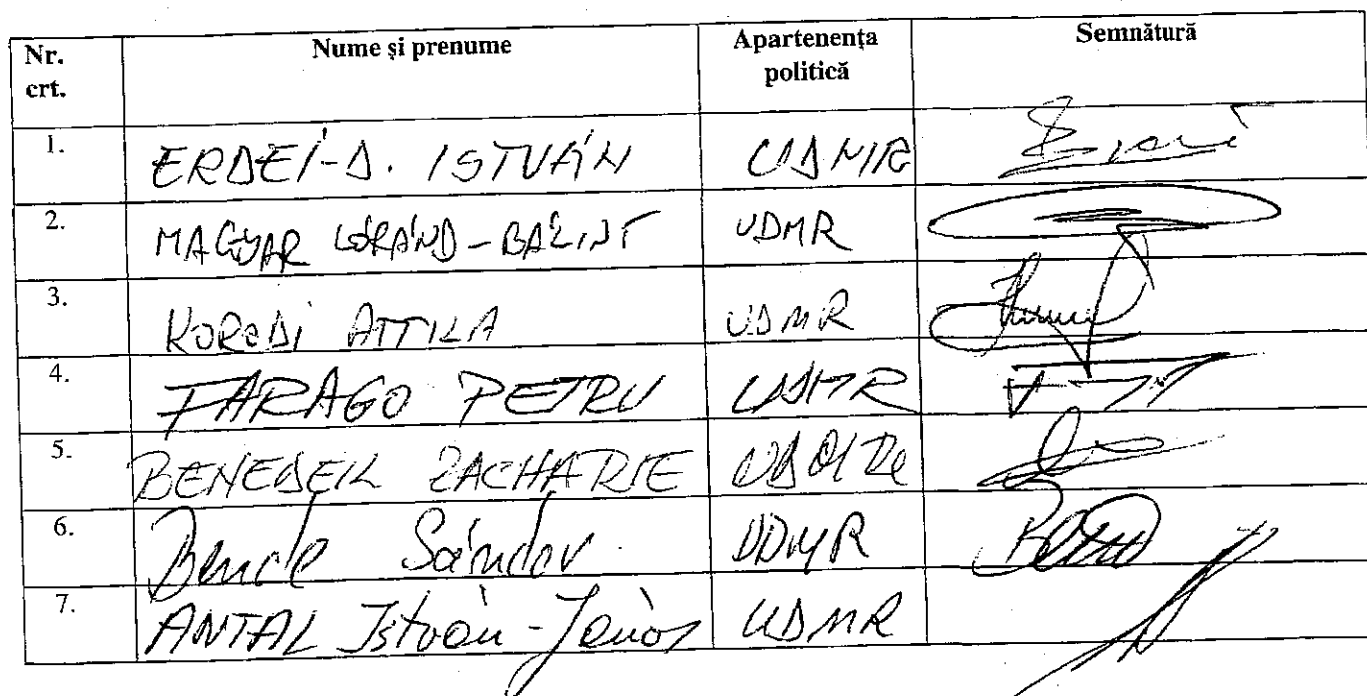 Nr. crt. Nume și prenume Apartenența politică Semnătură
1. ERDEI-D. ISTVÁN UDMR
2. MAGYAR LÓRÁND-BÁLINT UDMR
3. KORODI ATTILA UDMR
4. FARAGO PETRU UDMR
5. BENEDEK ZACHARIE UDMR
6. Bende Sándor UDMR
7. ANTAL István-János UDMR